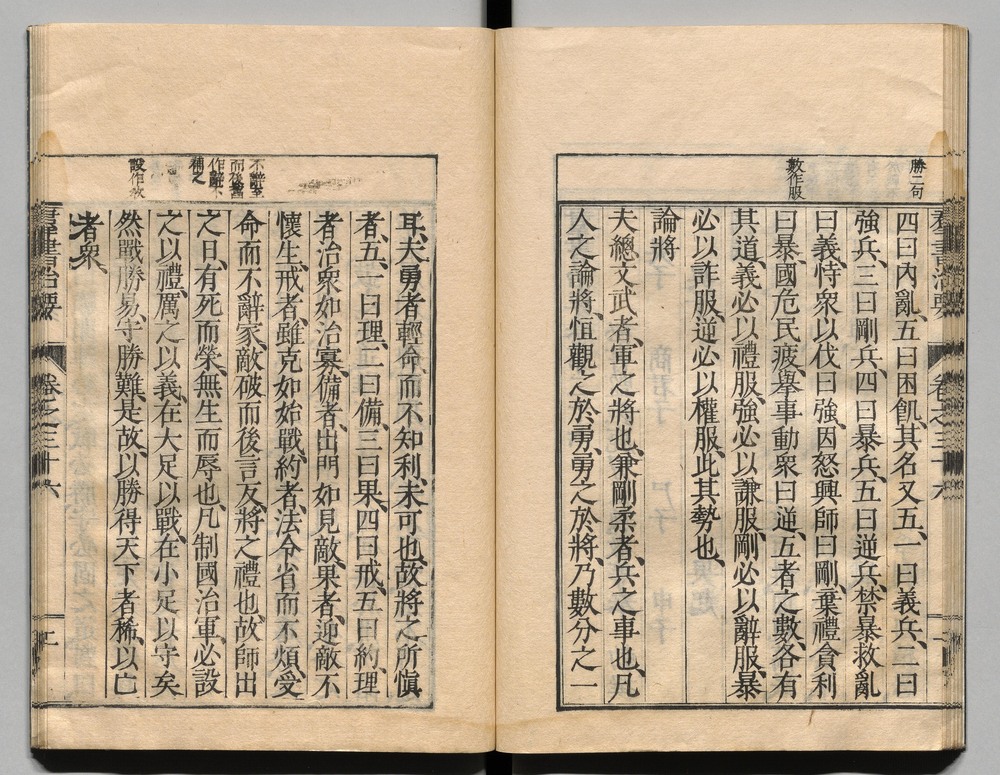 勝二句
數作服
四曰內亂、五曰困飢、其名又五、一曰義兵、二曰
強兵、三曰剛兵、四曰暴兵、五曰逆兵、禁暴救亂
曰義、恃衆以伐曰強、因怒興師曰剛、棄禮貪利
曰暴、國危民疲、擧事動衆曰逆、五者之數、各有
其道、義必以禮服、強必以謙服、剛必以辭服、暴
必以詐服、逆必以權服、此其勢也、
論將
夫總文武者、軍之將也、兼剛柔者、兵之事也、凡
人之論將、恒觀之於勇、勇之於將、乃數分之一
群書治要 卷之三十六
不辭至
而後舊
作辭不
補之
設作教
耳、夫勇者輕命、而不知利、未可也、故將之所愼
者、五、一曰理、二曰備、三曰果、四曰戒、五曰約、理
者、治衆如治寡、備者、出門如見敵、果者、迎敵不
懷生、戒者、雖克如始戰、約者、法令省而不煩、受
命而不辭家、敵破而後言友、將之禮也、故師出
之日、有死而榮、無生而辱也、凡制國治軍、必設
之以禮、厲之以義、在大足以戰、在小足以守矣
然戰勝易、守勝難、是故、以勝得天下者稀、以亡
者衆、
群書治要 卷之三十六